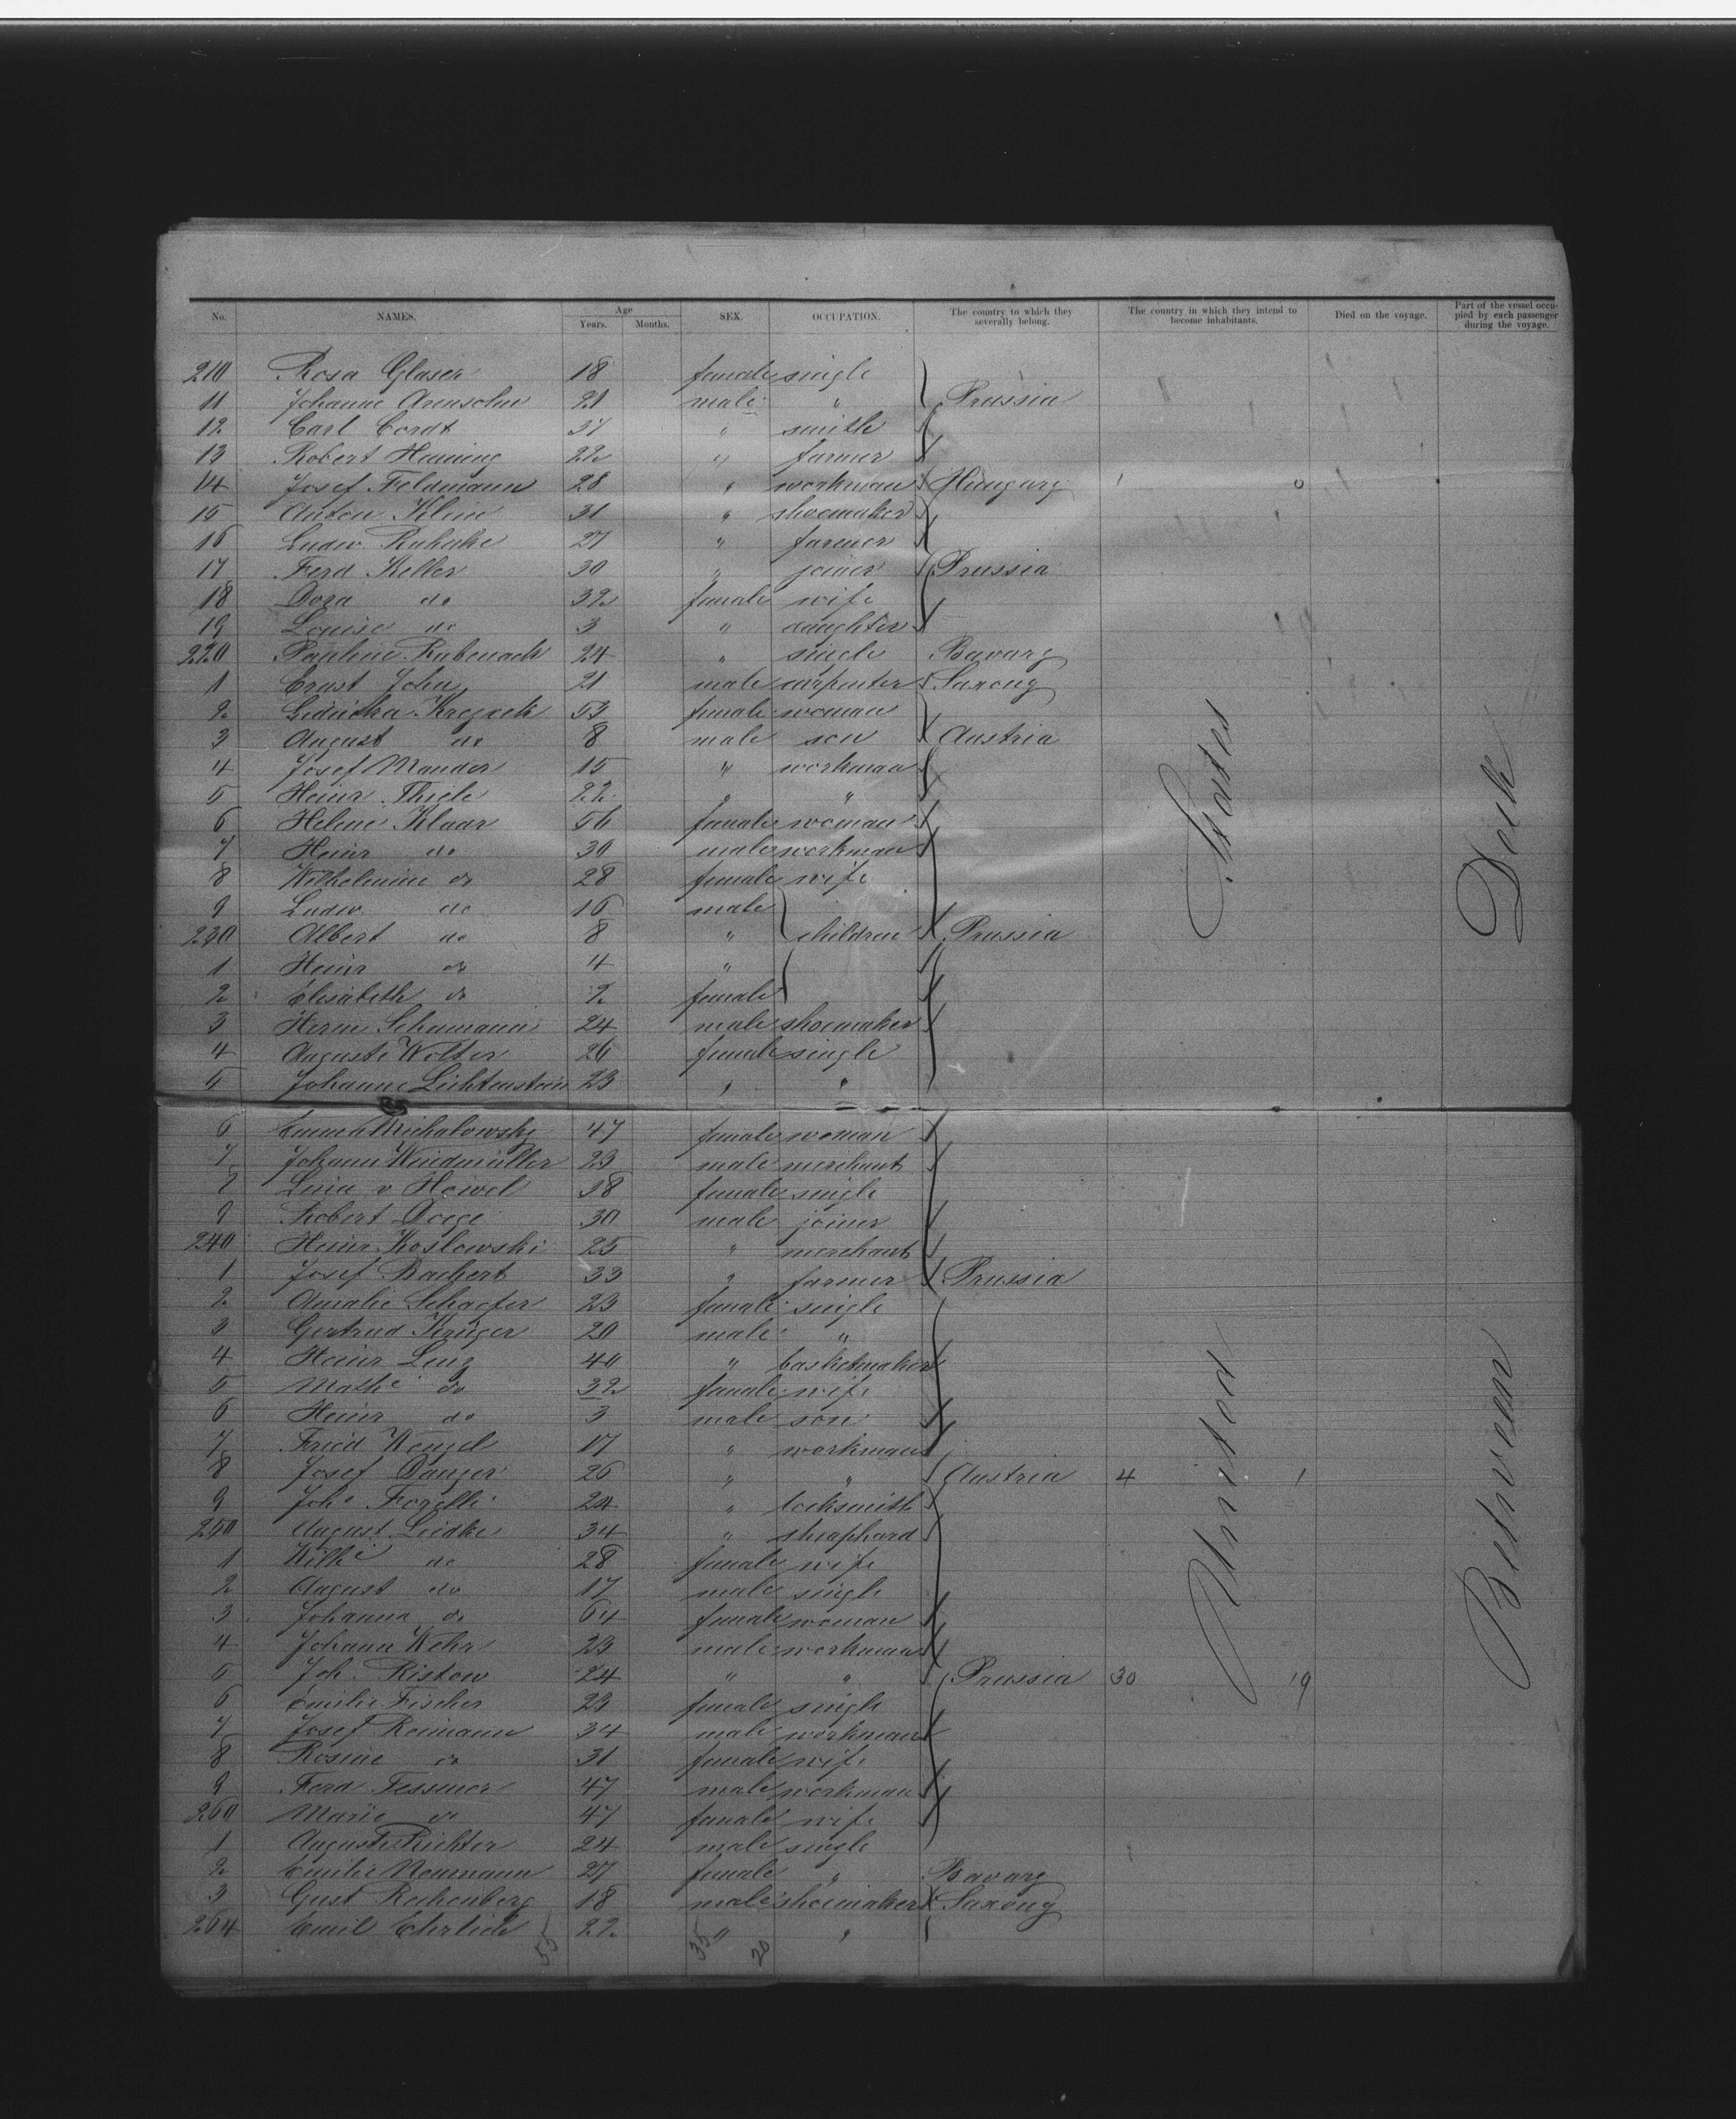 No. NAMES. Age Years. Months. SEX. OCCUPATION. The country to which they severally belong. The country in which they intend to become inhabitants. Died on the voyage. Part of the vessel occupied by each passenger during the voyage.
210 Rosa Glaser 18 female single
11 Johanne Arensohn 21 male " Prussia
12 Carl Cordt 37 " smith
13 Robert Henning 22 " farmer
14 Josef Feldmann 28 " workman Hungary 1 0
15 Anton Klein 31 " shoemaker
16 Ludw 27 " farmer
17 Ferd Keller 30 " joiner Prussia
18 Dora do 32 female wife
19 Louise do 3 " daughter
220 Pauline Rubenach 24 " single Bavary
1 Ernst John 21 male carpenter Saxony
2 53 female woman
3 August do 8 male son Austria
4 Josef Mander 15 " workman
5 Heinr Thiele 22 " "
6 Helene Klaar 56 female woman
7 Heinr do 30 male workman
8 Wilhelmine do 28 female wife
9 Ludw do 16 male
230 Albert do 8 " children Prussia
1 Heinr do 4 "
2 Elisabeth do 2 female
3 Herm Schumann 24 male shoemaker
4 Auguste Wolter 26 female single
5 Johanne Lichtenstein 23 " "
6 Emma Michalowsky 47 female woman
7 Johann Windmüller 23 male merchant
8 Lina v Hewel 38 female single
9 Robert Doege 30 male joiner
240 Heinr Koslowski 25 " merchant
1 Josef Bachert 33 " farmer Prussia
2 Amalie Schaefer 23 female single
3 Gertrud Krüger 20 male "
4 Heinr Lenz 40 " basketmaker
5 Mathe do 32 female wife
6 Heinr do 3 male son
7 Fried Wengel 17 " workman
8 Josef Danzer 26 " " Austria 4 1
9 Johs Forelli 24 " locksmith
250 August Liedke 34 " sheaphard
1 Wilhe do 28 female wife
2 August do 17 male single
3 Johanna do 64 female woman
4 Johann Wehr 23 male workman
5 Joh. Ristow 24 " " Prussia 30 19
6 Emilie Fischer 23 female single
7 Josef Reimann 34 male workman
8 Rosine do 31 female wife
9 Ferd Tessmer 47 male workman
260 Marie do 47 female wife
1 Auguste Richter 24 male single
2 Emilie Neumann 27 female " Bavary
3 Gust Rechenberg 18 male shoemaker Saxony
264 Emil Ehrlich 22 " "
55 35 20
United States
Between Deck